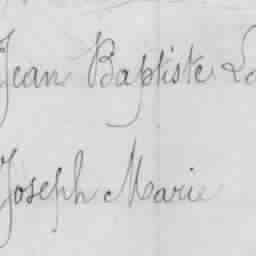 Jean Baptiste
Joseph Marie